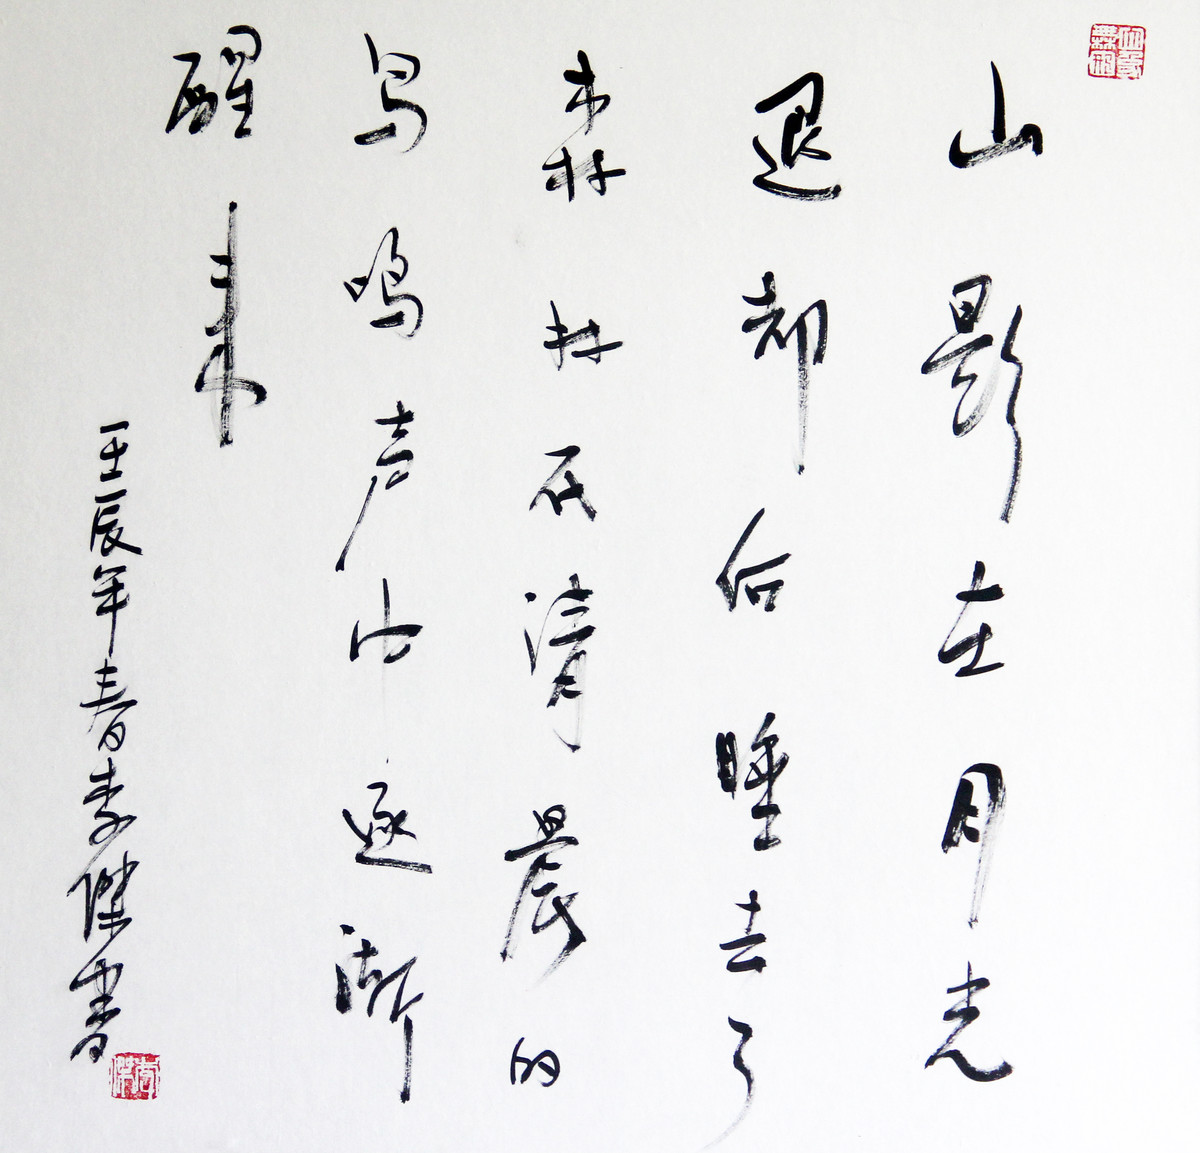 山影在月光
退却后睡去了
森林在清晨的
鸟鸣声中逐渐
醒来
壬辰年春李傑書
李傑